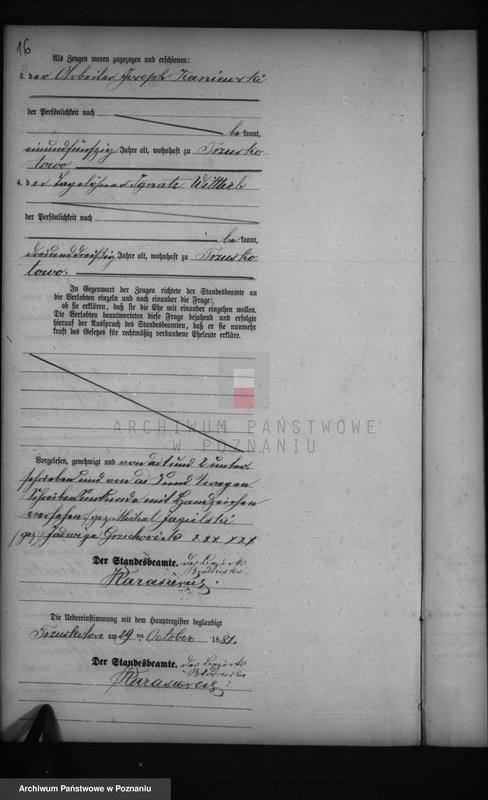 16
Als Zeugen waren zugezogen und erschienen:
3. der Arbeiter Joseph Kaniewski
der Persönlichkeit nach
be kannt,
einundfünfzig Jahre alt, wohnhaft zu Trzusko
towo
4. der Tagelöhner Ignatz Wittlieb
der Persönlichkeit nach
be kannt,
dreiunddreißig Jahre alt, wohnhaft zu Trzusko-
towo.
In Gegenwart der Zeugen richtete der Standesbeamte an
die Verlobten einzeln und nach einander die Frage:
ob sie erklären, daß sie die Ehe mit einander eingehen wollen.
Die Verlobten beantworteten diese Frage bejahend und erfolgte
hierauf der Ausspruch des Standesbeamten, daß er sie nunmehr
kraft des Gesetzes für rechtmäßig verbundene Eheleute erkläre.
ARCHIWUM PAŃSTWOWE
W POZNANIU
Vorgelesen, genehmigt und von ad 1 und 2 unter-
schrieben und von ad 3 und 4 wegen
Schreibensunkunde mit Handzeichen
versehen. (gez.) Michael Jagielski
(gez.) Jadwiga xxx xxx
Der Standesbeamte. des Bezirks
Biedrusko
Karasiewicz
Die Uebereinstimmung mit dem Hauptregister beglaubigt
am 29 ten October 1881.
Der Standesbeamte. des Bezirks
Biedrusko
Karasiewicz
Archiwum Państwowe w Poznaniu